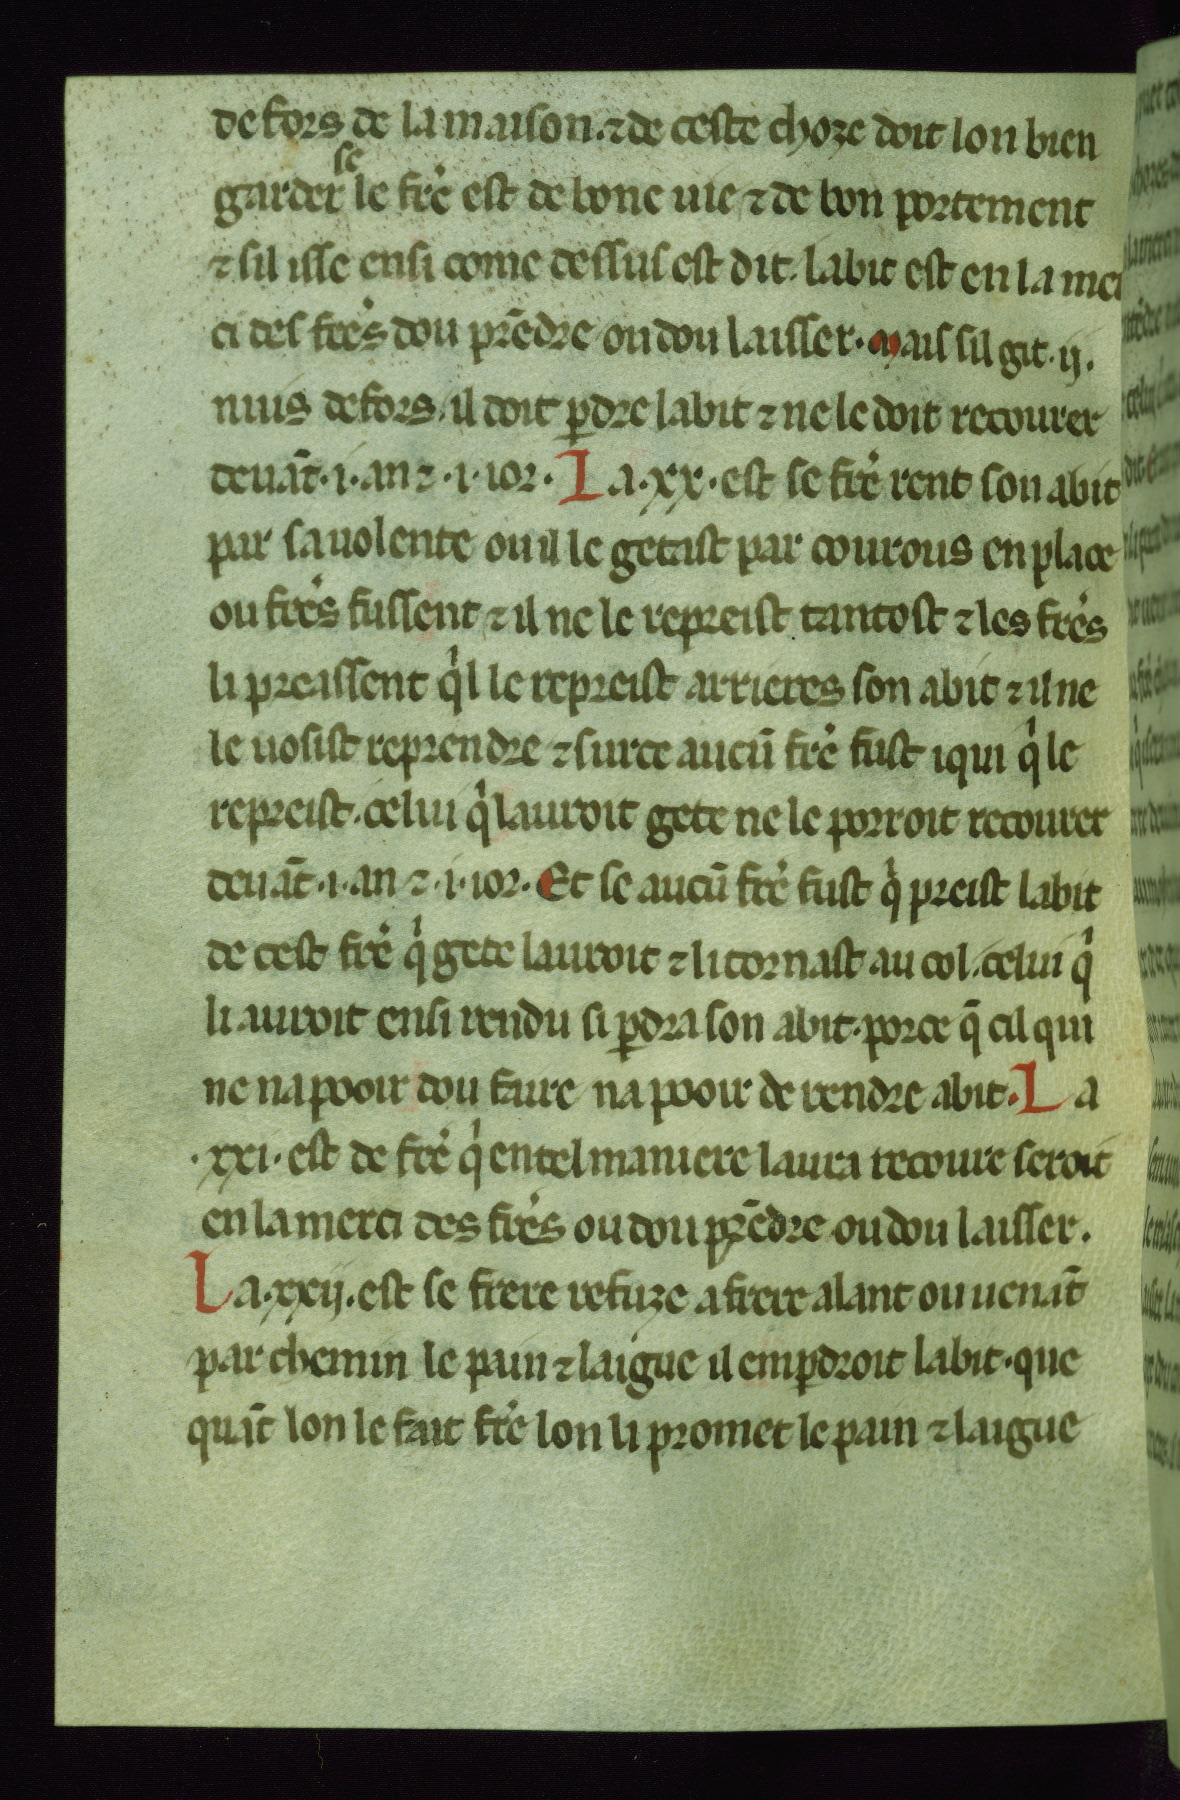 defors de la maison. ⁊ de ceste choze doit lon bien
garder se le fre᷒ est de bone uie ⁊ de bon portement
⁊ sil isse ensi come dessus est dit. labit est en la mer
ci des fre᷒s dou p̄rēdre ou dou laisser. Mais sil git .ij.
nuis defors. il doit ꝑdre labit ⁊ ne le doit recourer
deuāt .i. an ⁊ .i. ior. La .xx. est se fre᷒ rent son abit
par sa uolente ou il le getast par courous en place
ou fre᷒s fussent ⁊ il ne le repreist tantost ⁊ les fre᷒s
li preassent qͥl le repreist arrieres son abit ⁊ il ne
le uosist reprendre ⁊ sur ce aucū fre᷒ fust iqui qͥ le
repreist. celui qͥ lauroit gete ne le porroit recourer
deuāt .i. an ⁊ .i. ior. Et se aucū fre᷒ fust qͥ preist labit
de cest fre᷒ qͥ gete lauroit ⁊ li tornast au col. celui qͥ
li auroit ensi rendu si ꝑdra son abit. por ce q̄ cil qui
ne na pooir dou faire na pooir de rendre abit. La
.xxi. est de fre᷒ qͥ en tel maniere laura recoure seroit
en la merci des fre᷒s ou dou prēdre ou dou laisser.
La .xxij. est se frere refuze a frere alant ou uenāt
par chemin le pain ⁊ laigue il em ꝑdroit labit. que
quāt lon le fait fre᷒ lon li promet le pain ⁊ laigue